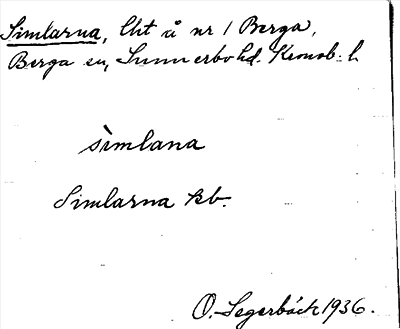 Simlarna, lht å nr 1 Berga,
Berga sn, Sunnerbo hd. Kronob. l.
sìmlana
Simlarna kb.
O. Segerbäck 1936.